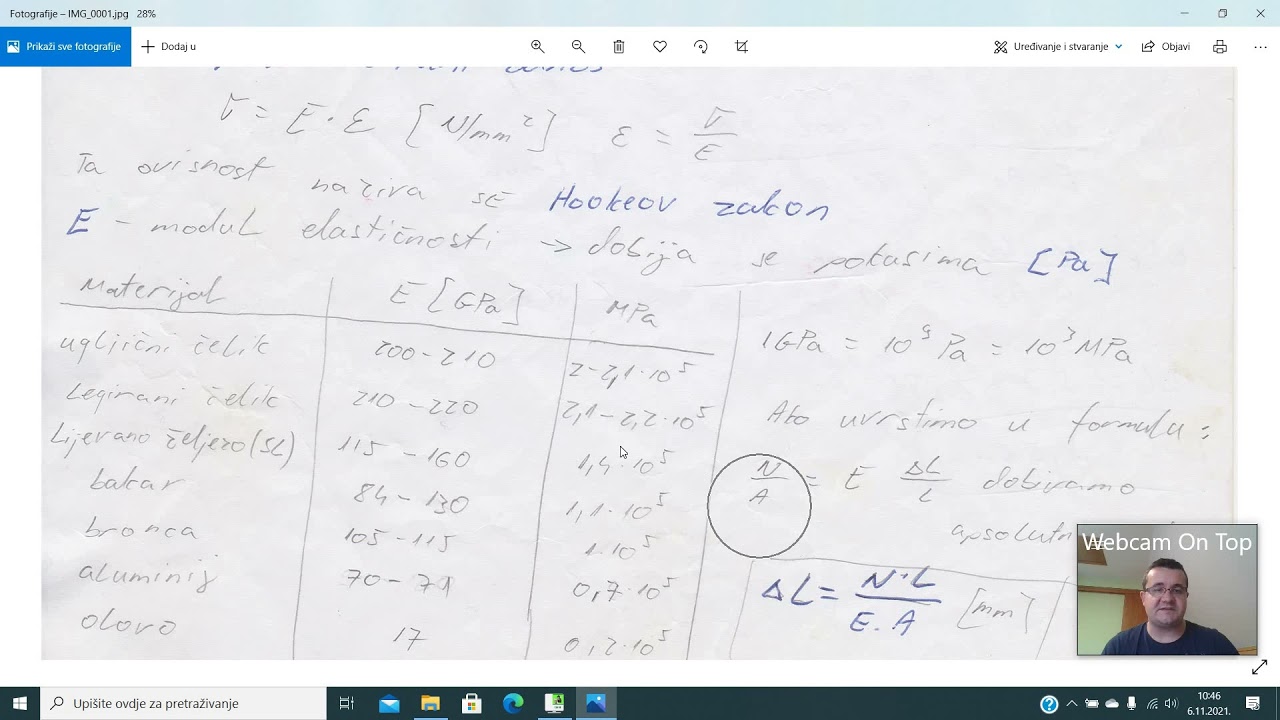 Fotografije – IMG_0001.jpg 28%
Prikaži sve fotografije
Dodaj u
Uređivanje i stvaranje
Objavi
σ = E · ε [N/mm²] ε = σ/E
Ta ovisnost naziva se Hookeov zakon
E - modul elastičnosti → dobija se pokusima [Pa]
Materijal E [GPa] MPa
ugljični čelik 200-210 2-2,1·10⁵
Legirani čelik 210-220 2,1-2,2·10⁵
Lijevano željezo (SL) 115-160 1,4·10⁵
bakar 84-130 1,1·10⁵
bronca 105-115 1·10⁵
aluminij 70-71 0,7·10⁵
olovo 17 0,2·10⁵
1GPa = 10⁹ Pa = 10³ MPa
Ako uvrstimo u formulu:
N/A = E ΔL/L dobivamo
apsolutn
ΔL = N·L/E.A [mm]
Webcam On Top
Upišite ovdje za pretraživanje
10:46
6.11.2021.